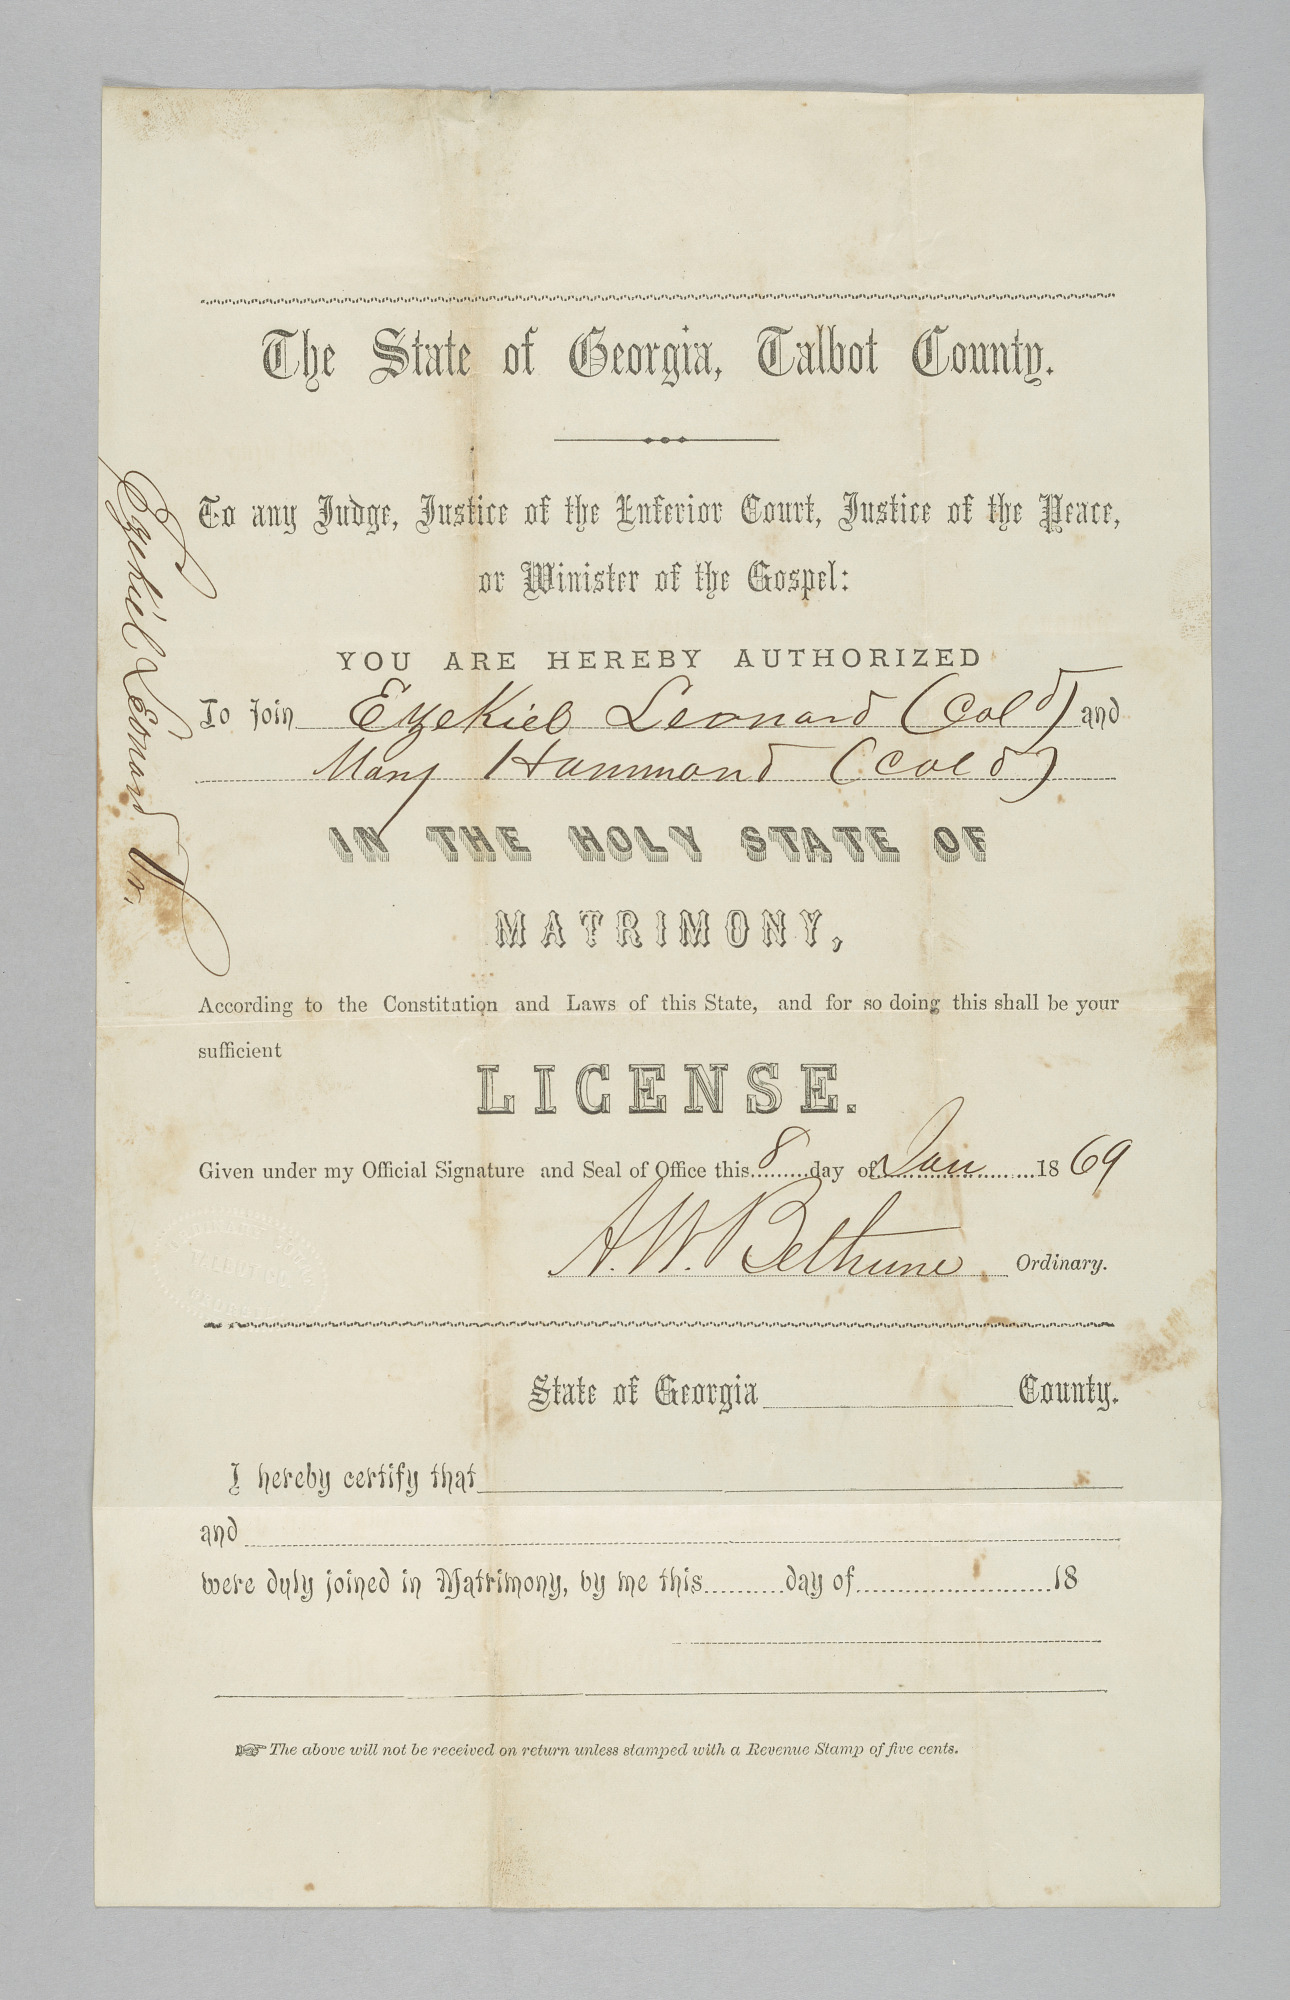 The State of Georgia, Talbot County.
To any Judge, Justice of the Inferior Court, Justice of the Peace,
or Minister of the Gospel:
YOU ARE HEREBY AUTHORIZED
To join Ezekiel Leonard (Cold) and
Mary Hammond (Cold)
IN THE HOLY STATE OF
MATRIMONY,
According to the Constitution and Laws of this State, and for so doing this shall be your
sufficient
LICENSE.
Given under my Official Signature and Seal of Office this 8 day of Jan 1869
A. W. Bethune Ordinary.
TALBOT CO.
GEORGIA
State of Georgia County.
I hereby certify that
and
were duly joined in Matrimony, by me this day of 18
The above will not be received on return unless stamped with a Revenue Stamp of five cents.
Ezekiel Leonard